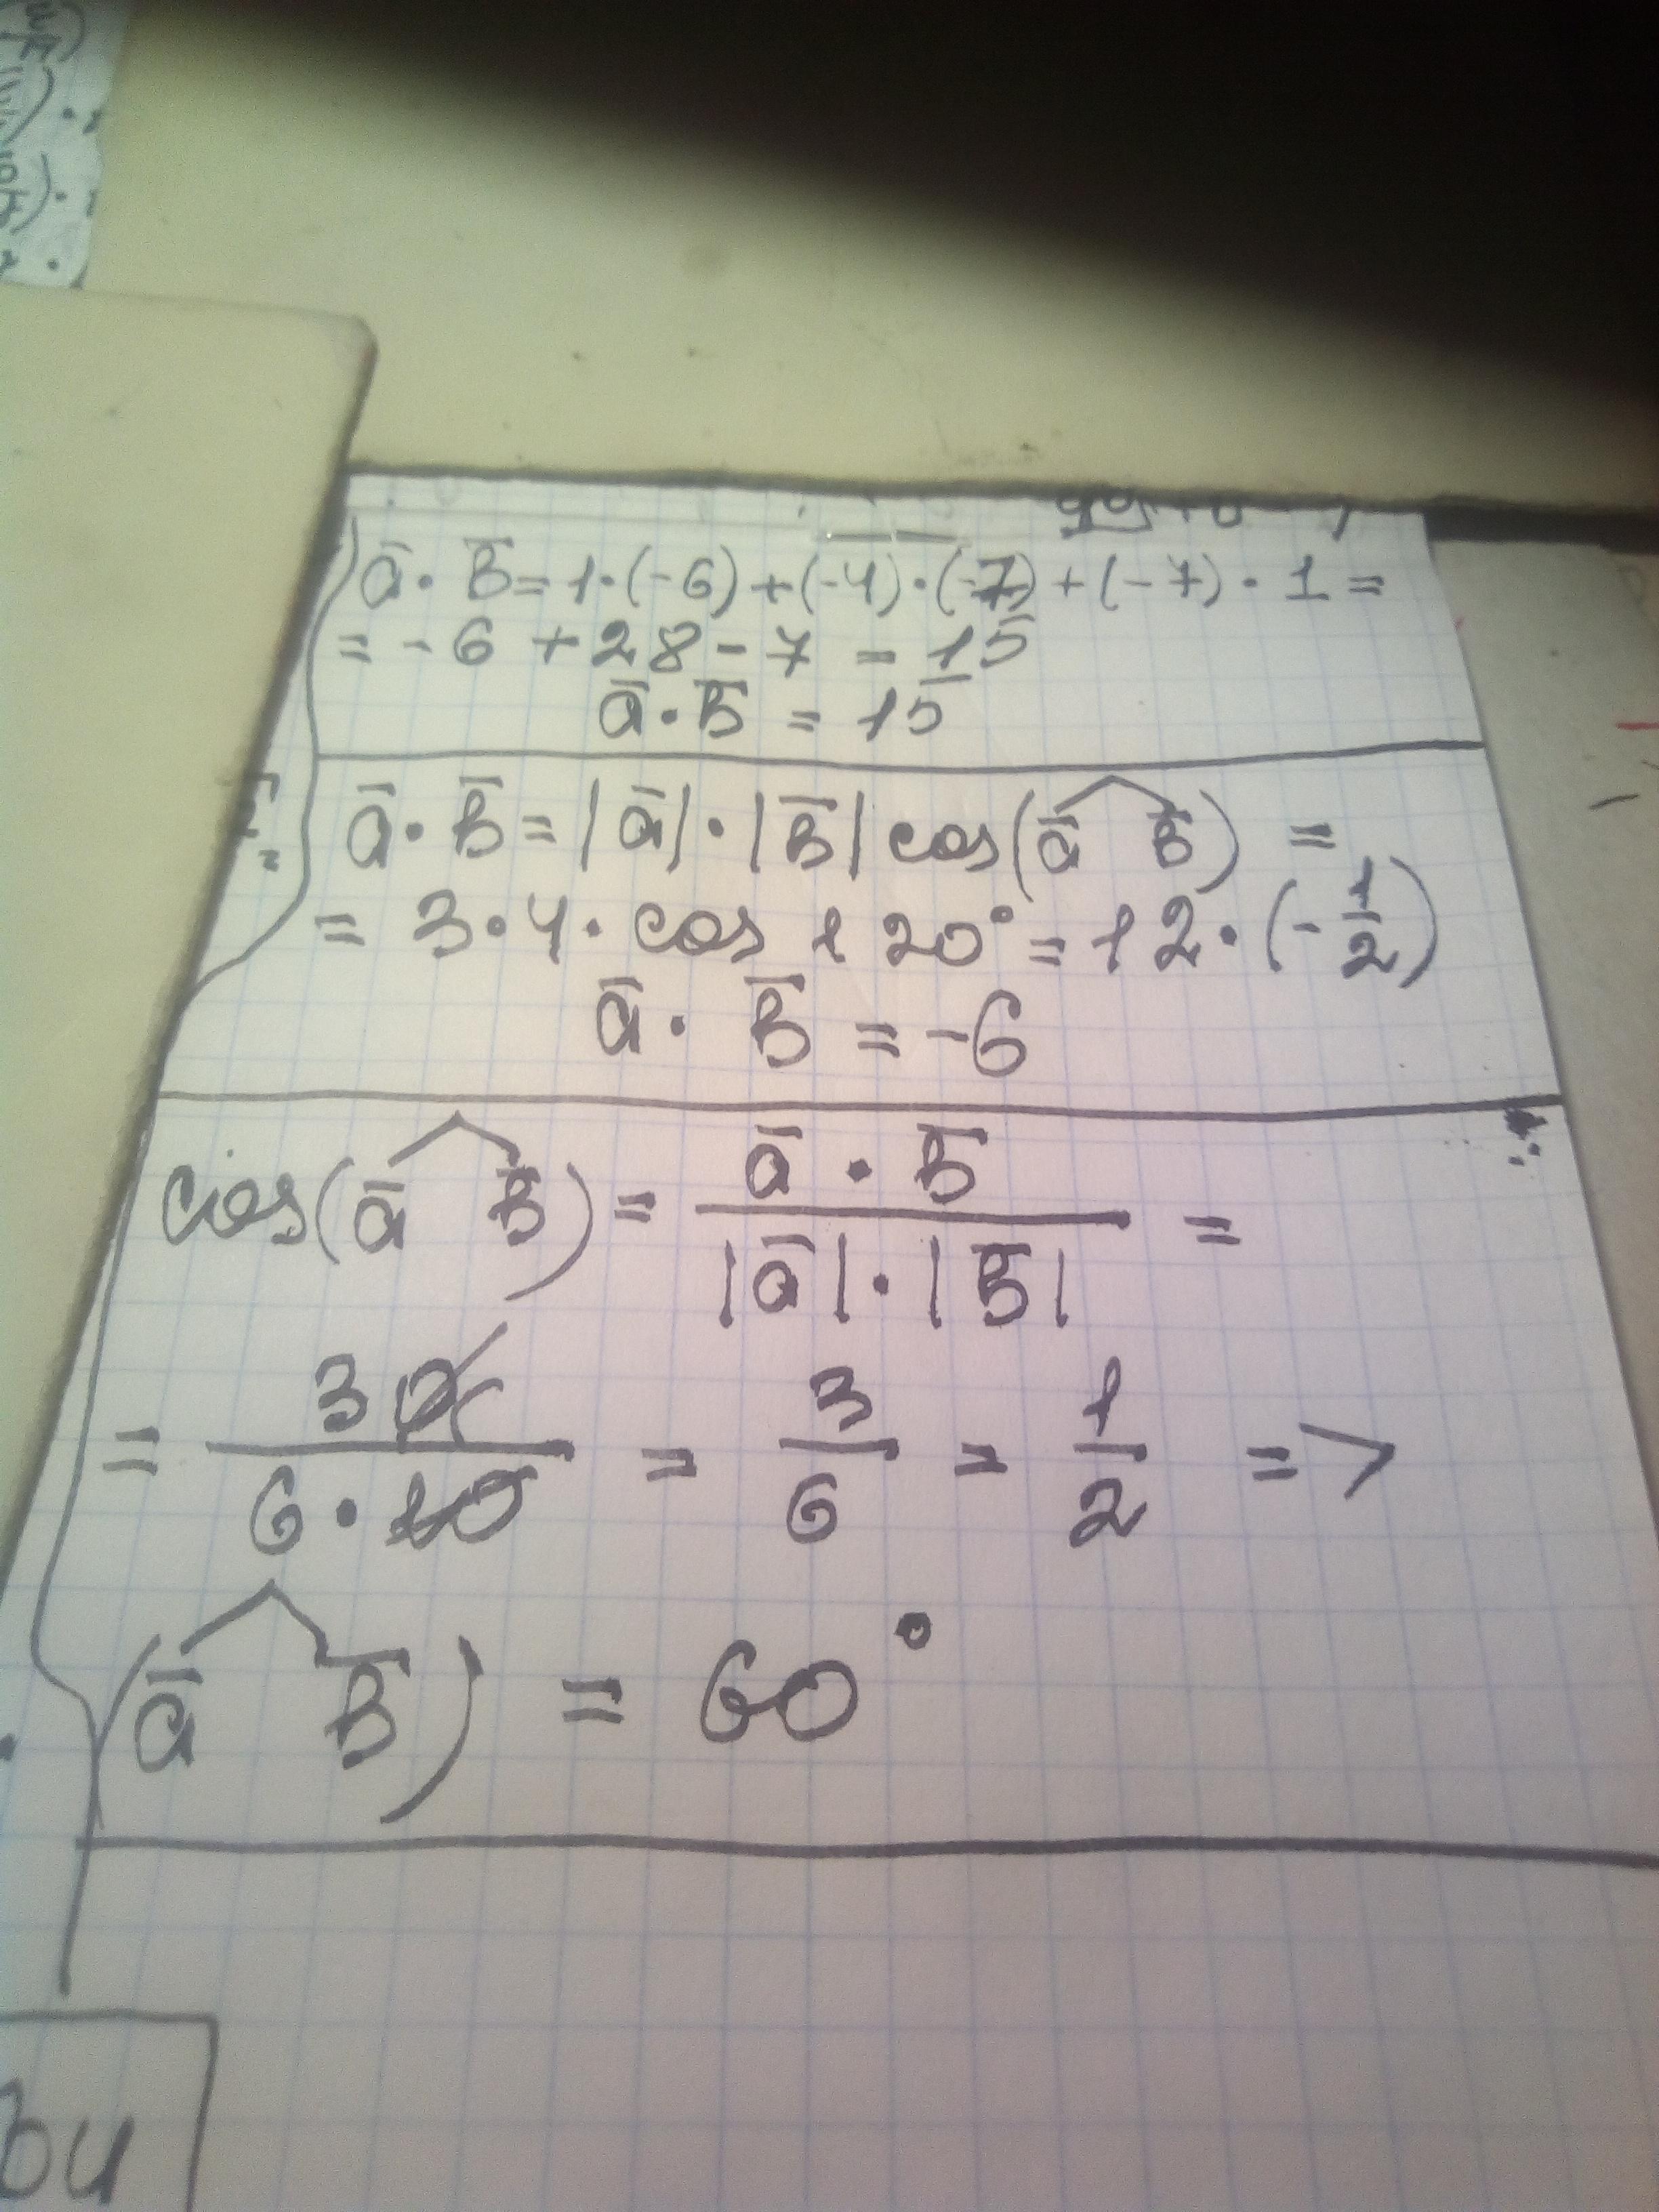 ā · b̄ = 1 · (-6) + (-4) · (-7) + (-7) · 1 =
= -6 + 28 - 7 = 15
ā · b̄ = 15
ā · b̄ = |ā| · |b̄| cos(ā b̄) =
= 3 · 4 · cos 120° = 12 · (-1/2)
ā · b̄ = -6
cos(ā b̄) = ā · b̄ / |ā| · |b̄| =
= 30 / 6 · 10 = 3/6 = 1/2 =>
(ā b̄) = 60°